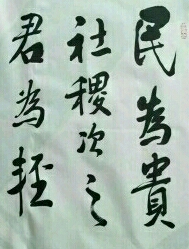 民為貴
社稷次之
君為輕